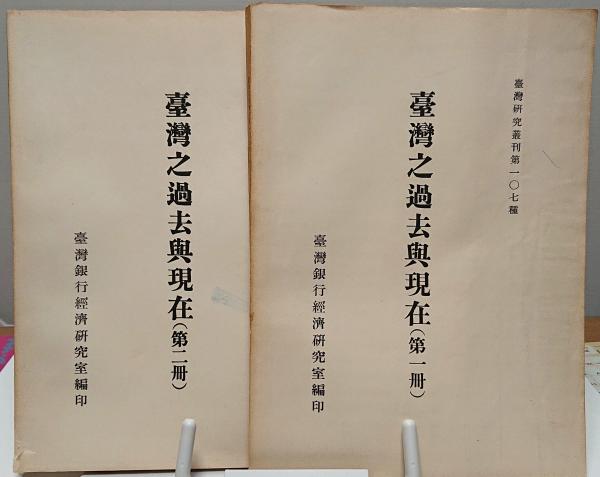 臺灣研究叢刊第一〇七種
臺灣之過去與現在(第一冊)
臺灣銀行經濟研究室編印
臺灣之過去與現在(第二冊)
臺灣銀行經濟研究室編印